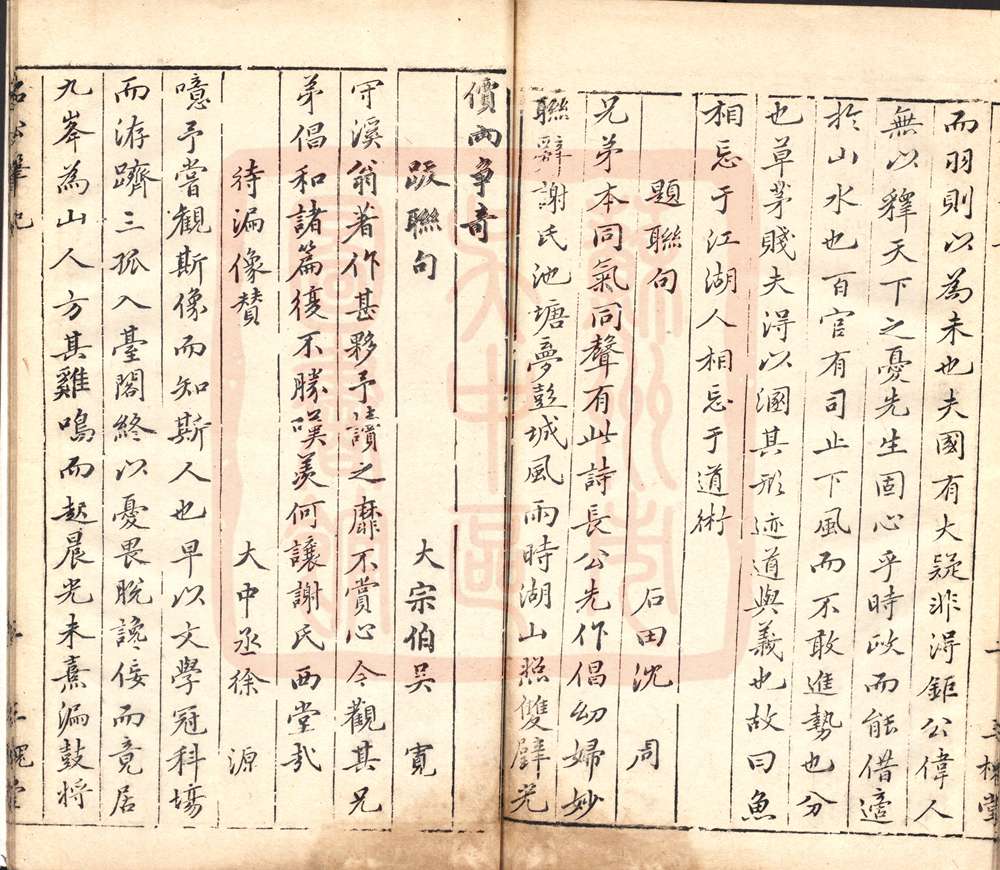 而羽則以為未也夫國有大疑非得鉅公偉人
無以釋天下之憂先生固心乎時政而能借適
於山水也百官有司止下風而不敢進勢也分
也草茅賤夫得以溷其形迹道與義也故曰魚
相忘于江湖人相忘于道術
題聯句 石田沈周
兄弟本同氣同聲有此詩長公先作倡幼婦妙
聯辭謝氏池塘夢彭城風雨時湖山照雙璧光
價兩爭奇
跋聯句 大宗伯吳寬
守溪翁著作甚夥予讀之靡不賞心今觀其兄
弟倡和諸篇復不勝嘆羨何讓謝氏西堂哉
待漏像贊 大中丞徐源
噫予嘗觀斯像而知斯人也早以文學冠科場
而洊躋三孤入臺閣終以憂畏脫讒佞而竟居
九峯為山人方其雞鳴而起晨光未熹漏鼓將
名公筆記